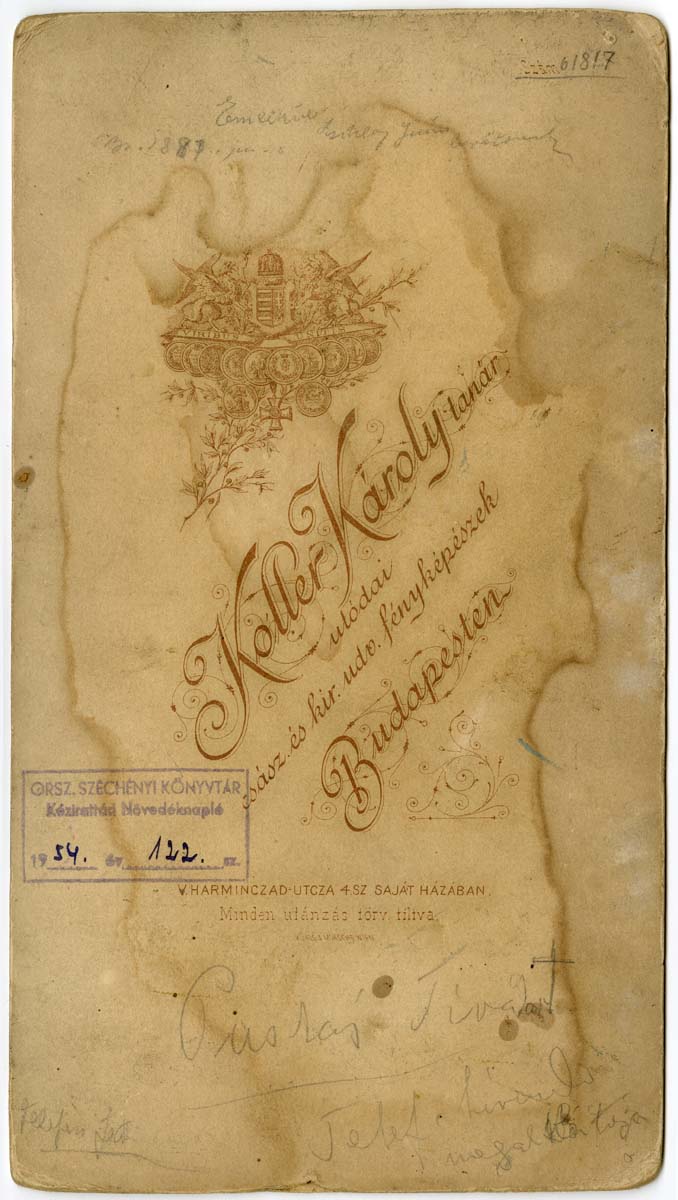 Szám 61817
Emlékül
1887
VIRIBUS UNITIS
Koller Károly tanár
utódai
csász. és kir. udv. fényképészek
Budapesten
ORSZ. SZÉCHÉNYI KÖNYVTÁR
Kézirattári Növedéknapló
1954. év 122. sz.
V. HARMINCZAD-UTCZA 4. SZ SAJÁT HÁZÁBAN.
Minden utánzás törv. tiltva.
Puskás Tivadar †
Telef. hírmondó
megalkotója
Telefon